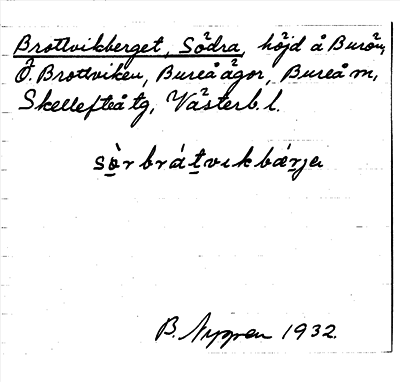 Brottvikberget, Södra, höjd å Burön,
Ö. Brottviken, Bureå ägor, Bureå m,
Skellefteå tg, Västerb. l.
sö̀rbrátvikbárja
B. Nygren 1932.